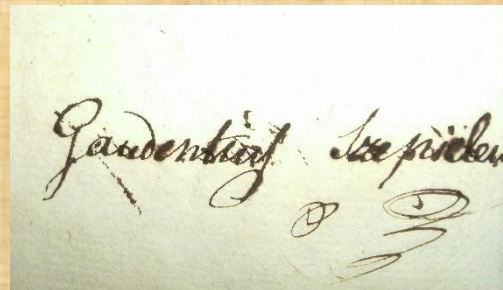 Gaudentius Szepielew